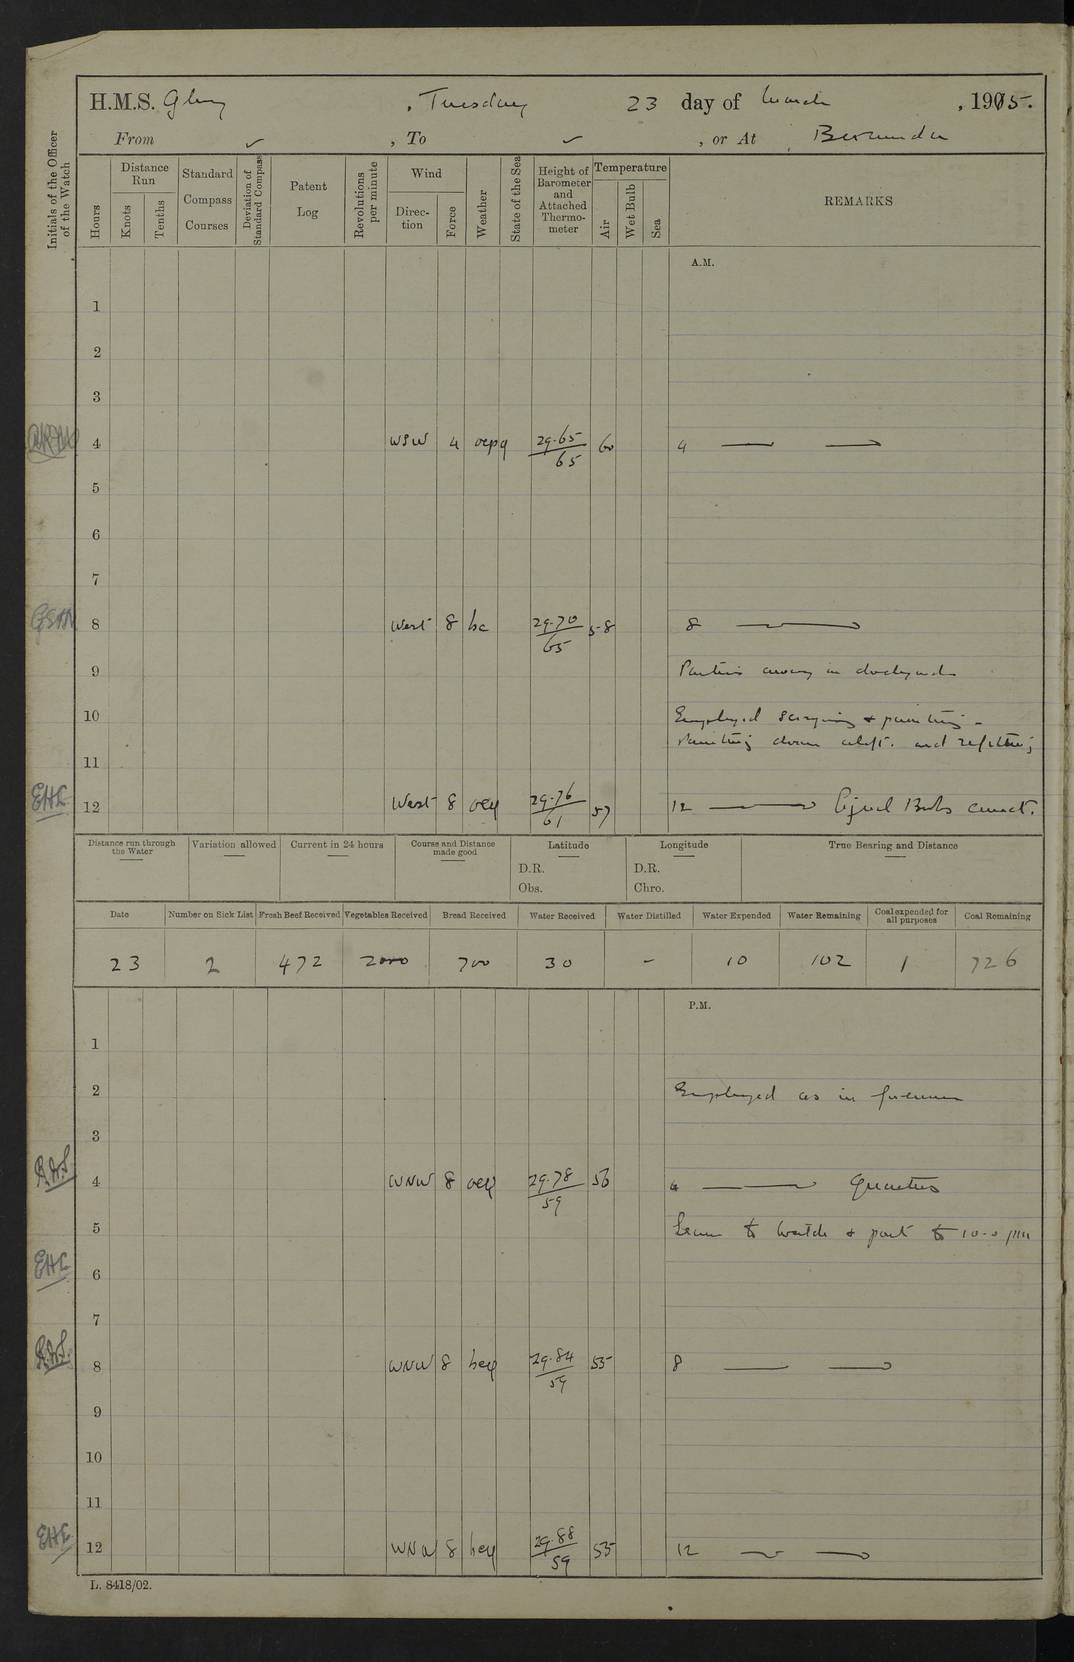 H.M.S. Glory, Tuesday 23 day of March, 1915.
From ✓, To ✓, or At Bermuda
Initials of the Officer of the Watch
Hours
Distance Run
Knots
Tenths
Standard Compass Courses
Deviation of Standard Compass
Patent Log
Revolutions per minute
Wind
Direction
Force
Weather
State of the Sea
Height of Barometer and Attached Thermometer
Temperature
Air
Wet Bulb
Sea
REMARKS
A.M.
1
2
3
4 WSW 4 ocpq 29.65 / 65 60 4
5
6
7
8 West 8 bc 29.70 / 65 58 8
9 Parties away in dockyard
10 Employed scraping & painting -
painting down aloft. and refitting
11
EHL 12 West 8 ocq 29.76 / 61 57 12
Distance run through the Water
Variation allowed
Current in 24 hours
Course and Distance made good
Latitude
D.R.
Obs.
Longitude
D.R.
Chro.
True Bearing and Distance
Date Number on Sick List Fresh Beef Received Vegetables Received Bread Received Water Received Water Distilled Water Expended Water Remaining Coal expended for all purposes Coal Remaining
23 2 472 2000 700 30 - 10 102 1 726
P.M.
1
2 Employed as in forenoon
3
4 WNW 8 ocq 29.78 / 59 56 4 Quarters
5 Leave to watch & part to 10-0 pm
EHL 6
7
8 WNW 8 bcq 29.84 / 59 55 8
9
10
11
EHL 12 WNW 8 bcq 29.88 / 59 55 12
L. 8418/02.